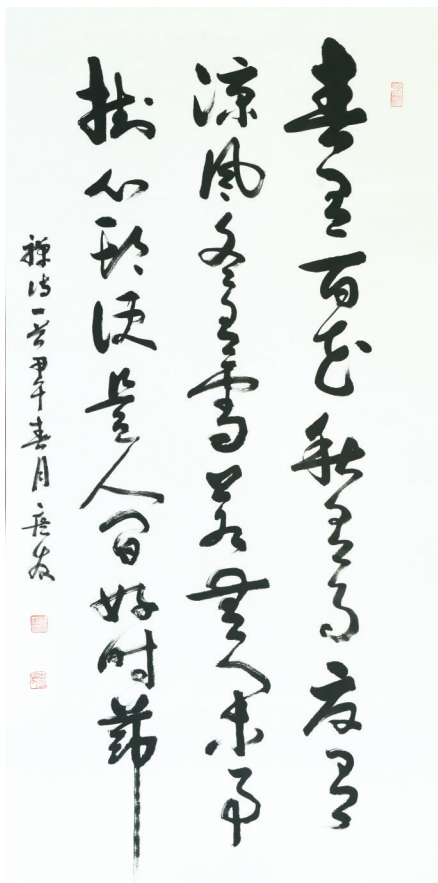 春有百花秋有月夏有
涼風冬有雪若無閑事
掛心頭便是人間好時節
禪詩一首甲午春月